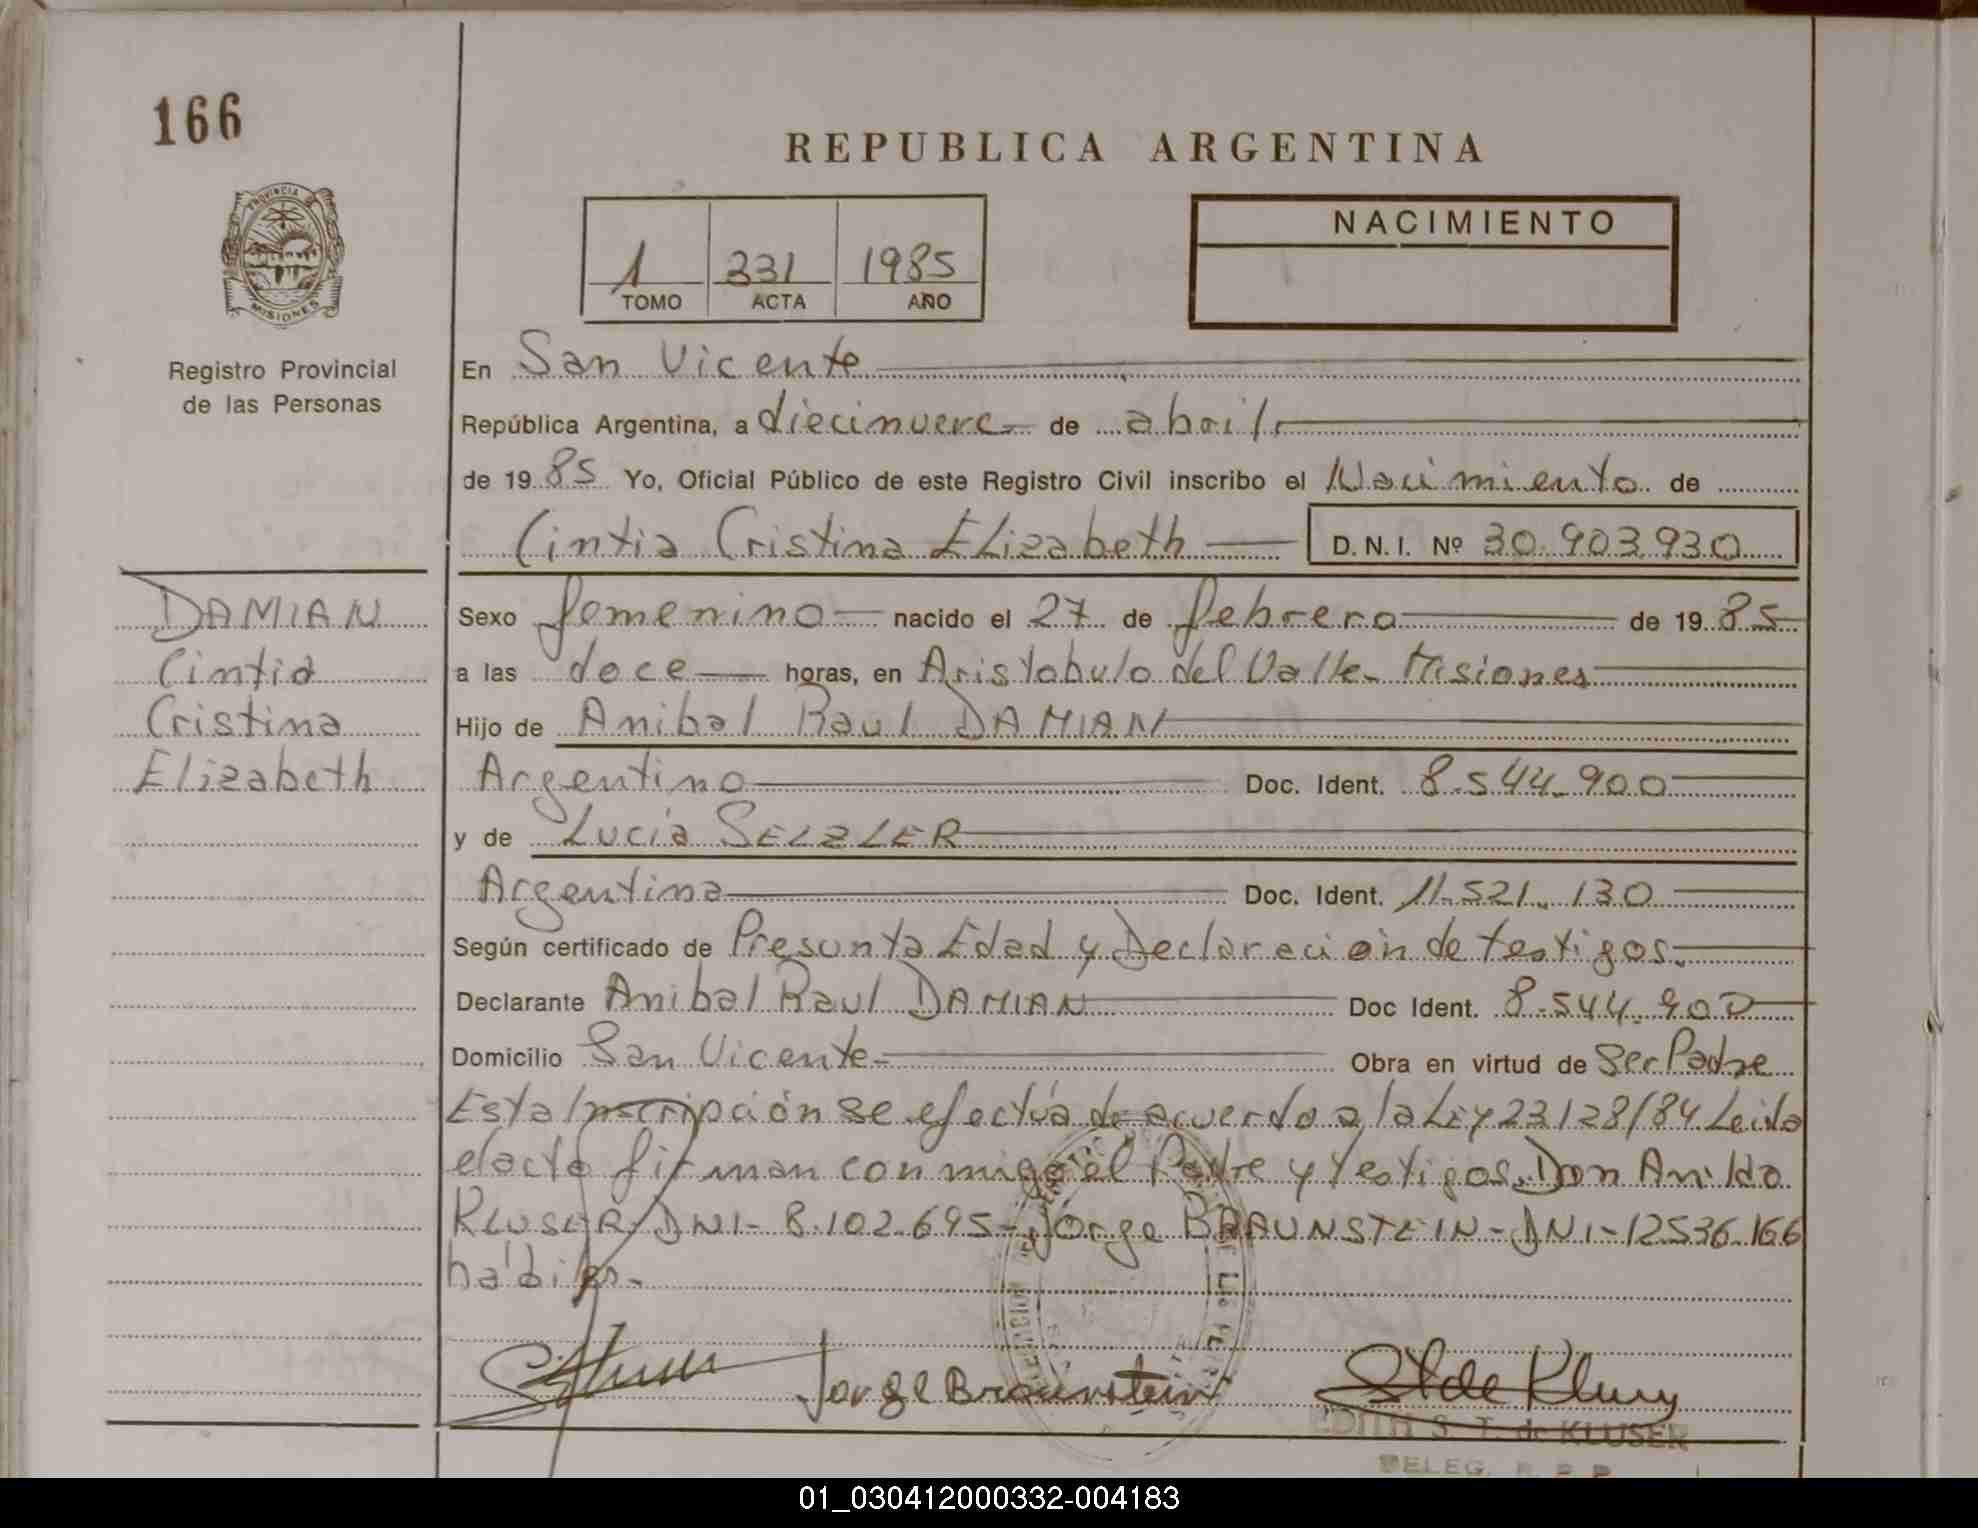 166
REPUBLICA ARGENTINA
PROVINCIA DE MISIONES
1 331 1985
TOMO ACTA AÑO
NACIMIENTO
Registro Provincial
de las Personas
En San Vicente
República Argentina, a diecinueve de abril
de 1985 Yo, Oficial Público de este Registro Civil inscribo el Nacimiento de
Cintia Cristina Elizabeth D.N.I. Nº 30.903.930
DAMIAN
Cintia
Cristina
Elizabeth
Sexo femenino nacido el 27 de febrero de 1985
a las doce horas, en Aristobulo del Valle. Misiones
Hijo de Anibal Raul DAMIAN
Argentino Doc. Ident. 8.544.900
y de Lucia SELZLER
Argentina Doc. Ident. 11.521.130
Según certificado de Presunta Edad y Declaración de testigos.
Declarante Anibal Raul DAMIAN Doc Ident. 8.544.900
Domicilio San Vicente Obra en virtud de Ser Padre
Esta Inscripción se efectúa de acuerdo a la Ley 23128/84. Leida
el acta firman conmigo el Padre y testigos. Don Anildo
KLUSER DNI- 8.102.695- Jorge BRAUNSTEIN - DNI - 12536.166
hábiles.
Jorge Braunstein
EDITH S. T. de KLUSER
DELEG. R. P. P.
01_030412000332-004183